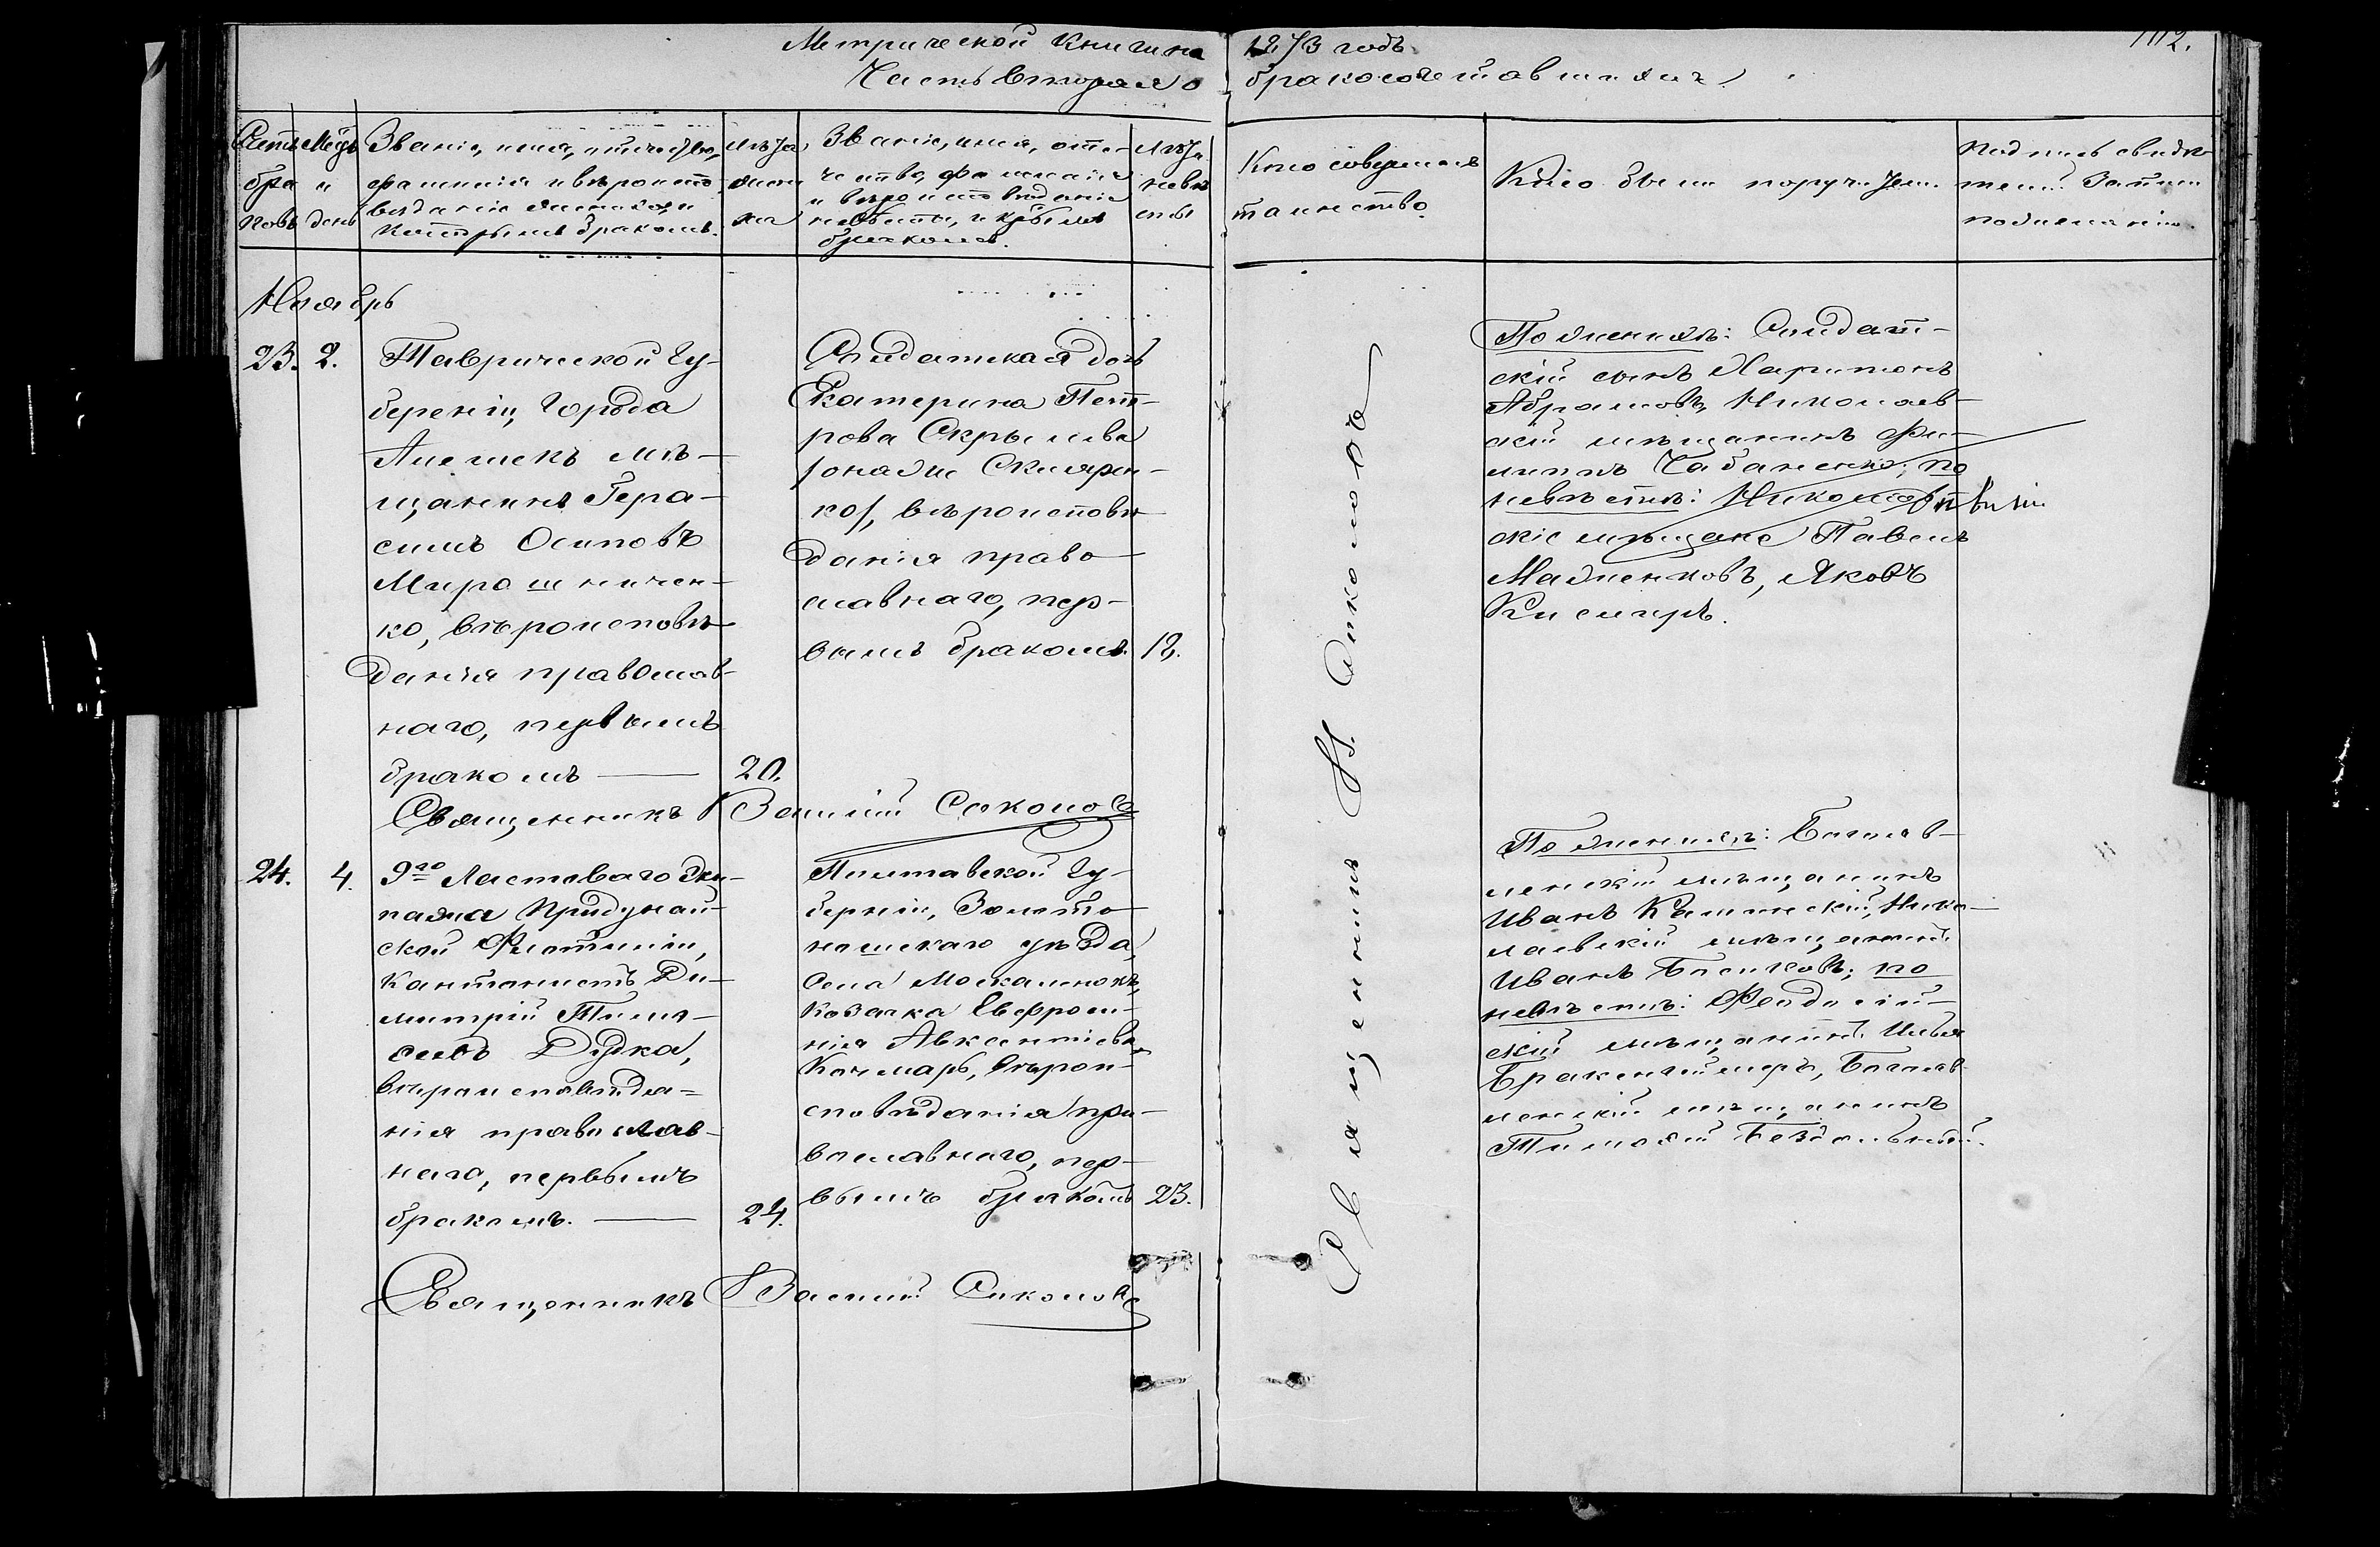 Метрической Книги на 1873 годъ.
Часть Вторая о бракосочетавшихся.
112.
Счетъ бра ковъ
Мсцъ и день
Званіе, имя, отчество,
фамилія и вѣроиспо-
вѣданіе жениха, и
которымъ бракомъ.
Лѣта жени ха
Званіе, имя, отче-
ство, фамилія
и вѣроисповѣданіе
невѣсты, и котрымъ
бракомъ.
Лѣта невѣ сты
Кто совершалъ
таинство.
Кто были поручители.
Подпись свидѣ-
телей записи
по желанію.
Ноябрь
23. 2.
Таврической Гу-
берніи, Города
Алешекъ мѣ-
щанинъ Гера-
симъ Осиповъ
Мирошничен-
ко, вѣроисповѣ-
данія православ-
наго, первымъ
бракомъ — 20.
Солдатская дочь
Екатерина Пет-
рова Скрылева
/она же Склярен-
ко/, вѣроисповѣ-
данія право-
славнаго, пер-
вымъ бракомъ. 18.
Священникъ Василій Соколовъ
По женихѣ: Солдат-
скій сынъ Харитонъ
Абрамовъ, Николаев-
скій мѣщанинъ Фи-
липпъ Чабаненко; по
невѣстѣ: Николаев-
скіе мѣщане Павелъ
Маженковъ, Яковъ
Кисляръ.
24. 4.
9го Ластоваго Эки-
пажа Придунай-
ской Флотиліи,
Кантонистъ Ди-
митрій Тимо-
феевъ Дудка,
вѣроисповѣда=
нія православ-
наго, первымъ
бракомъ. — 24.
Полтавской Гу-
берніи, Золото-
ношскаго уѣзда,
села Москаленокъ,
Козачка Евфроси-
нія Авксентіева
Кочмарь, вѣрои-
сповѣданія пра-
вославнаго, пер-
вымъ бракомъ 23.
Священникъ Василій Соколовъ
По женихѣ: Богояв-
ленскій мѣщанинъ
Иванъ Нико-
лаевскій мѣщанинъ
Иванъ по
невѣстѣ: Феодосій-
скій мѣщанинъ Илья
Богояв-
ленскій мѣщанинъ
Тимофей
Священникъ В. Соколовъ